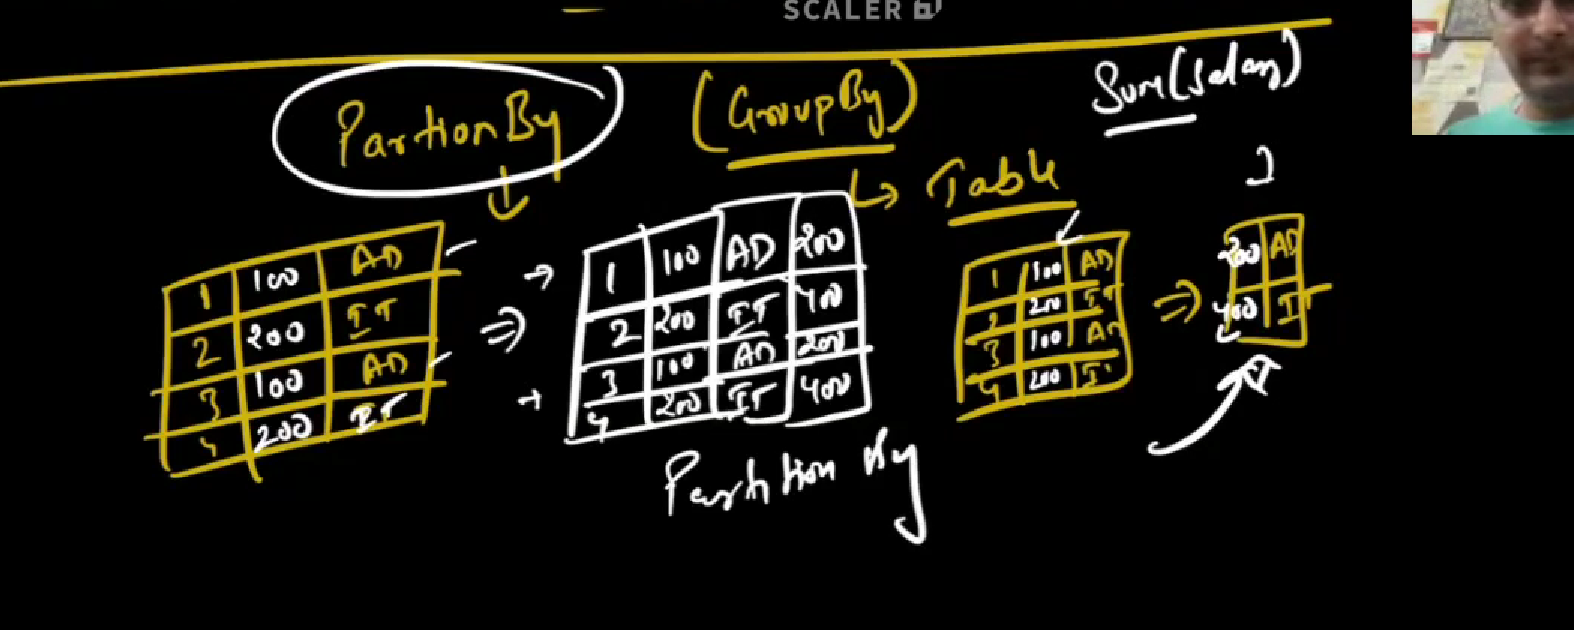 SCALER
PartionBy
(GroupBy)
Sum(Salary)
Table
1 100 AD
2 200 IT
3 100 AD
4 200 IT
1 100 AD 200
2 200 IT 400
3 100 AD 200
4 200 IT 400
1 100 AD
2 200 IT
3 100 AD
4 200 I
200 AD
400 IT
Partition By